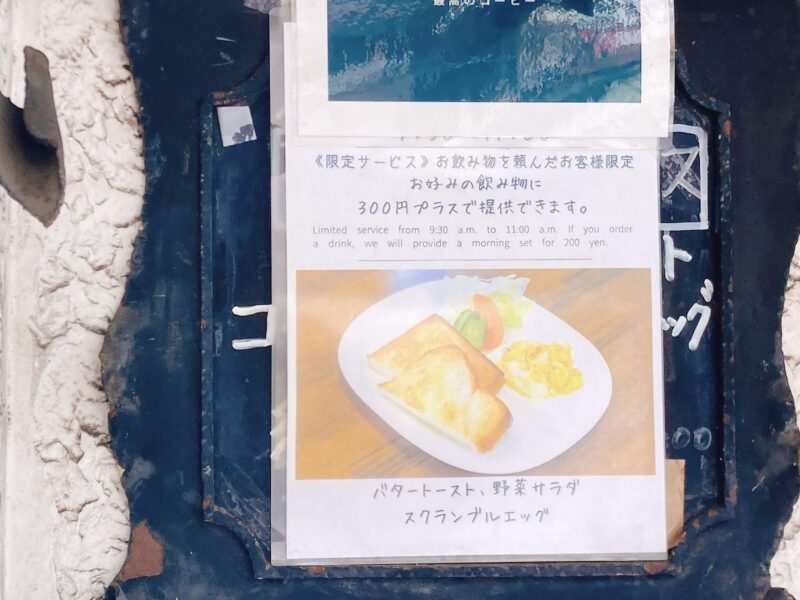 最高のコーヒー
《限定サービス》お飲み物を頼んだお客様限定
お好みの飲み物に
300円プラスで提供できます。
Limited service from 9:30 a.m. to 11:00 a.m. If you order
a drink, we will provide a morning set for 200 yen.
バタートースト、野菜サラダ
スクランブルエッグ